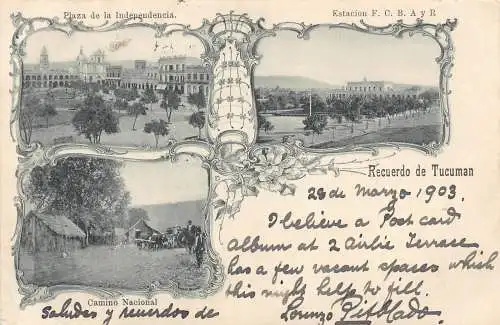 Plaza de la Independencia.
Estacion F. C. B. A y R
Recuerdo de Tucuman
28 de Marzo 1903.
I believe a Post card
Album at 2 Airlie Terrace
has a few vacant spaces which
this might help to fill.
Lorenzo Pitblado.
Camino Nacional
Saludes y recuerdos de